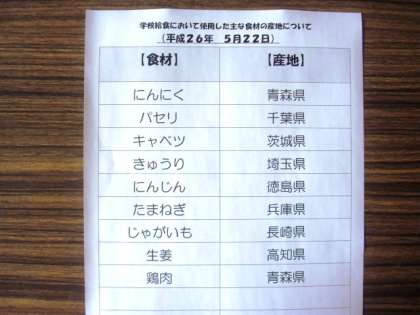 学校給食において使用した主な食材の産地について
(平成26年 5月22日)
【食材】 【産地】
にんにく 青森県
パセリ 千葉県
キャベツ 茨城県
きゅうり 埼玉県
にんじん 徳島県
たまねぎ 兵庫県
じゃがいも 長崎県
生姜 高知県
鶏肉 青森県